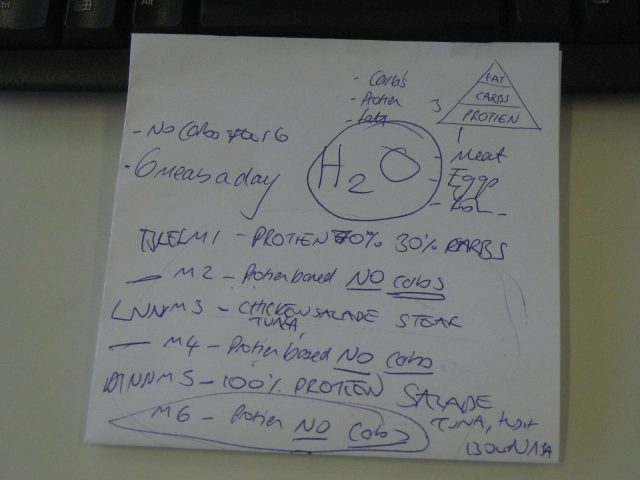 - Carbs
- Protien
- fats
3
FAT
CARBS
PROTIEN
- No Carbs after 6
- 6 meals a day
H2O
- Meat
- Eggs
M1 - PROTIEN 70% 30% CARBS
— M2 - Protien based NO Carbs
LNN M3 - CHICKEN SALADE STEAK
TUNA,
— M4 - Protien based NO Carbs
DINN M5 - 100% PROTIEN SALADE
TUNA,
M6 - Protien NO Carbs